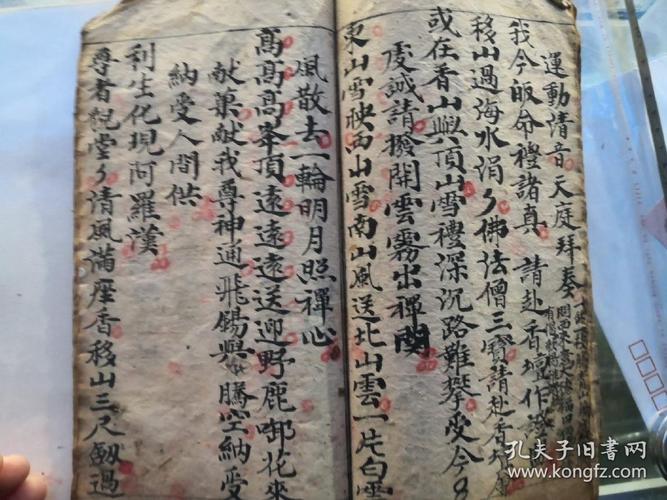 運動清音天庭拜奏
我今皈命禮諸真 請赴香壇作證
移山過海水涓々佛法僧三寶請赴香
或在香山與頂山雪禮深沉路難攀受今
虔誠請撥開雲霧出禪關
東山雪映西山雪南山風送北山雲一片白雲
風散去一輪明月照禪心
高高高峯頂遠遠遠送迎野鹿啣花來
献菓献我尊神通飛錫與騰空納受
納受人間供
利生化現阿羅漢
尊者 堂々清風滿座香移山三尺劔過
孔夫子旧書网
www.kongfz.com